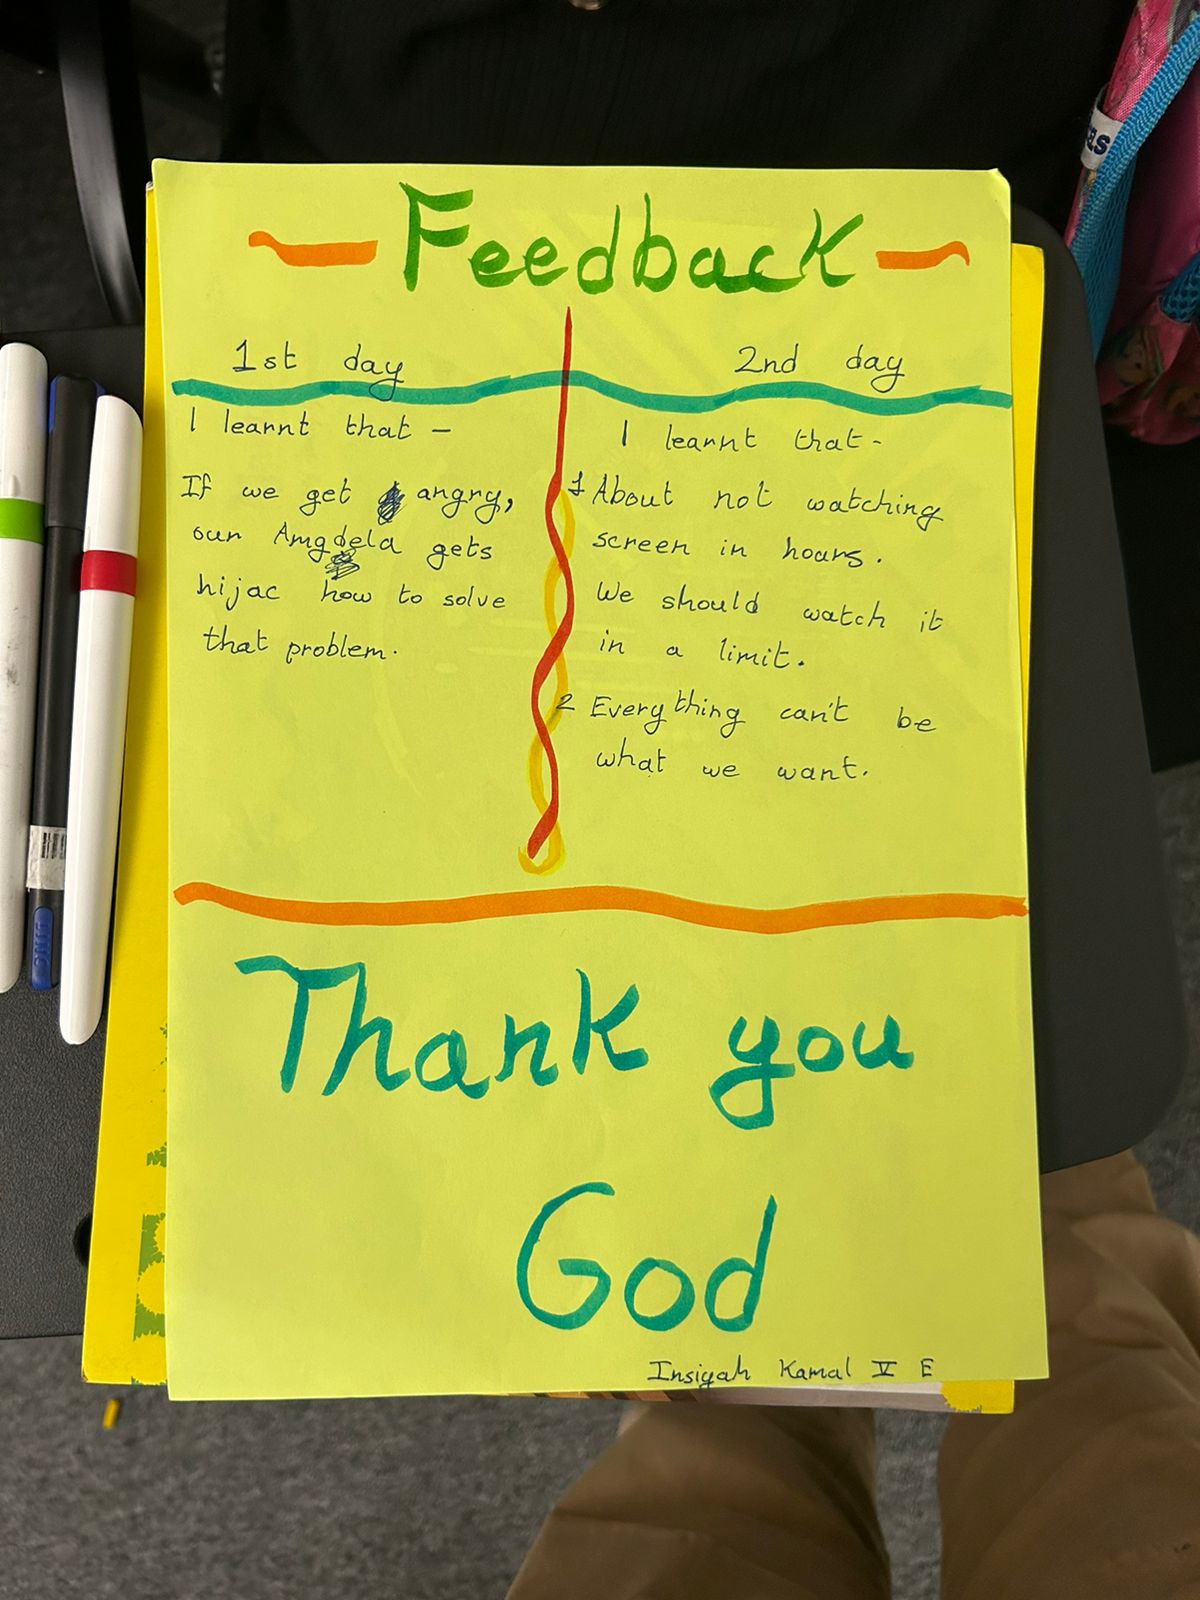 Feedback
1st day
I learnt that -
If we get angry,
our Amgdela gets
hijac how to solve
that problem.
2nd day
I learnt that -
1 About not watching
screen in hours.
We should watch it
in a limit.
2 Everything can't be
what we want.
Thank you
God
Insiyah Kamal V E